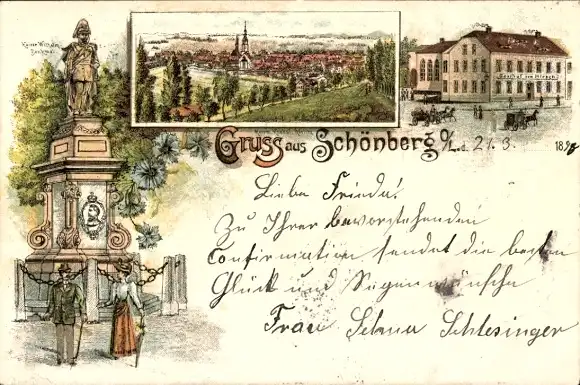 Kaiser Wilhelm
Denkmal.
Gasthof zum Hirsch
Gruss aus Schönberg O/L. d. 21. 3. 1898
Liebe Frieda!
Zu Ihrer bevorstehenden
Confirmation sendet die besten
Glück und Segenwünsche
Frau Selma Schlesinger